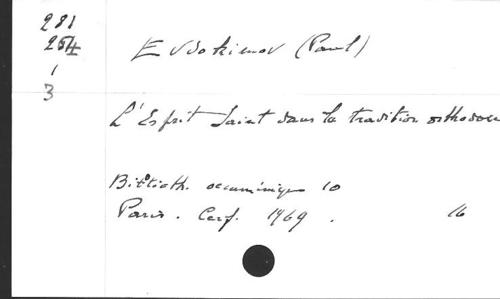 281
264
1
3
Evdokimov (Paul)
L'Esprit Saint dans la tradition orthodoxe
Biblioth. oecuménique 10
Paris. Cerf. 1969. 16